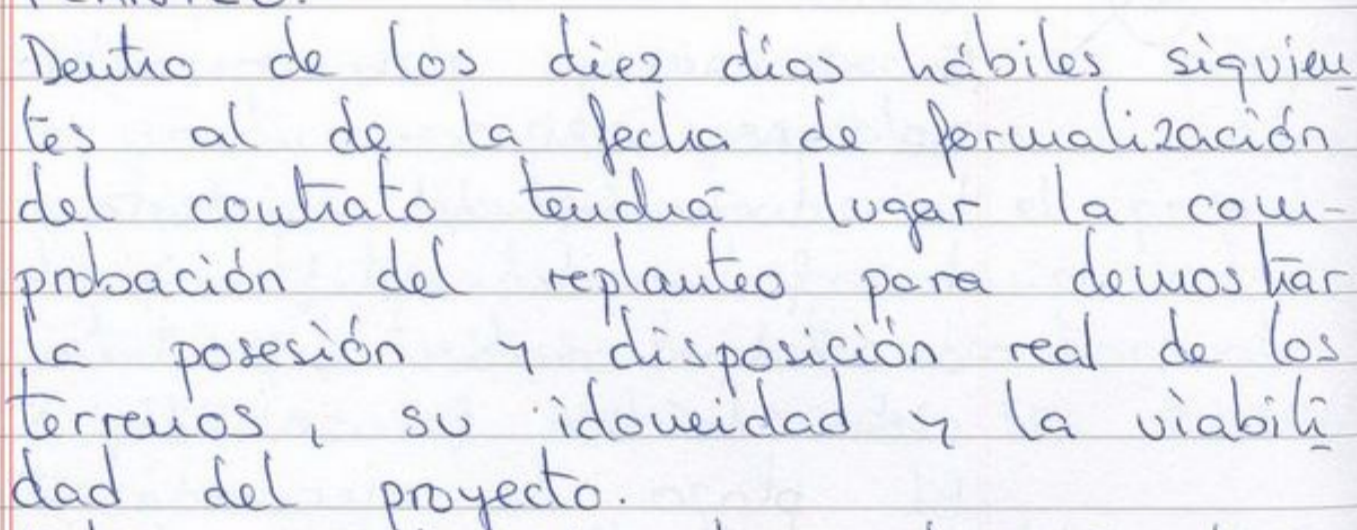 PLANTEO.
Dentro de los diez días hábiles siguien
tes al de la fecha de formalización
del contrato tendrá lugar la com-
probación del replanteo para demostrar
la posesión y disposición real de los
terrenos, su idoneidad y la viabili
dad del proyecto.